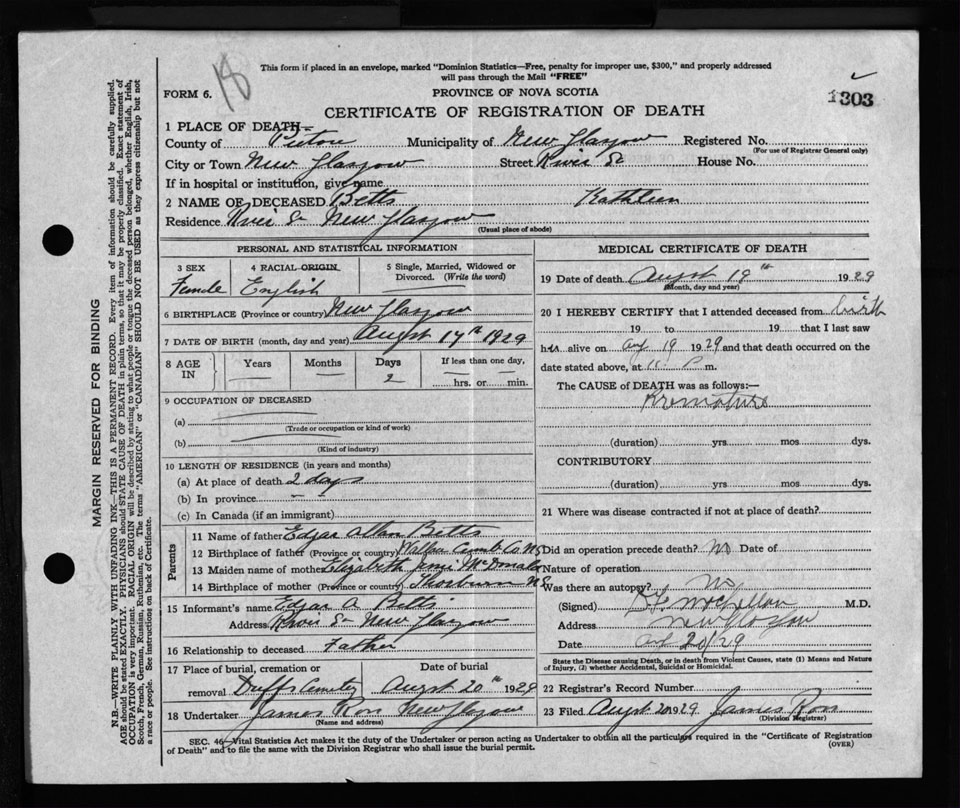 18
This form if placed in an envelope, marked "Dominion Statistics—Free, penalty for improper use, $300," and properly addressed
will pass through the Mail "FREE"
FORM 6.
PROVINCE OF NOVA SCOTIA
1303
CERTIFICATE OF REGISTRATION OF DEATH
1 PLACE OF DEATH—
County of Pictou Municipality of New Glasgow Registered No.
(For use of Registrar General only)
City or Town New Glasgow Street River St House No.
If in hospital or institution, give name
2 NAME OF DECEASED Betts Kathleen
Residence River St New Glasgow
(Usual place of abode)
PERSONAL AND STATISTICAL INFORMATION
3 SEX 4 RACIAL ORIGIN 5 Single, Married, Widowed or
Divorced. (Write the word)
Female English
6 BIRTHPLACE (Province or country) New Glasgow
7 DATE OF BIRTH (month, day and year) August 17th 1929
8 AGE IN Years Months Days If less than one day,
2 hrs. or min.
9 OCCUPATION OF DECEASED
(a)
(Trade or occupation or kind of work)
(b)
(Kind of industry)
10 LENGTH OF RESIDENCE (in years and months)
(a) At place of death 2 days
(b) In province
(c) In Canada (if an immigrant)
Parents
11 Name of father Edgar Allan Betts
12 Birthplace of father (Province or country) Wallace Cumb. Co NS
13 Maiden name of mother Elizabeth McDonald
14 Birthplace of mother (Province or country) Thorburn N.S.
15 Informant's name Edgar A Betts
Address River St New Glasgow
16 Relationship to deceased Father
17 Place of burial, cremation or Date of burial
removal Duffs Cemetery August 20th 1929
18 Undertaker James Ross New Glasgow
(Name and address)
MEDICAL CERTIFICATE OF DEATH
19 Date of death August 19th 1929
(Month, day and year)
20 I HEREBY CERTIFY that I attended deceased from birth
19 to 19 that I last saw
her alive on Aug 19 1929 and that death occurred on the
date stated above, at 11 P m.
The CAUSE of DEATH was as follows:—
Premature
(duration) yrs mos dys.
CONTRIBUTORY
(duration) yrs mos dys.
21 Where was disease contracted if not at place of death?
Did an operation precede death? No Date of
Nature of operation
Was there an autopsy? No
(Signed) M.D.
Address New Glasgow
Date Aug 20/29
State the Disease causing Death, or in death from Violent Causes, state (1) Means and Nature
of Injury, (2) whether Accidental, Suicidal or Homicidal.
22 Registrar's Record Number
23 Filed August 20 1929 James Ross
(Division Registrar)
SEC. 46—Vital Statistics Act makes it the duty of the Undertaker or person acting as Undertaker to obtain all the particulars required in the "Certificate of Registration
of Death" and to file the same with the Division Registrar who shall issue the burial permit. (OVER)
MARGIN RESERVED FOR BINDING
N.B.—WRITE PLAINLY WITH UNFADING INK—THIS IS A PERMANENT RECORD. Every item of information should be carefully supplied.
AGE should be stated EXACTLY. PHYSICIANS should STATE CAUSE OF DEATH in plain terms, so that it may be properly classified. Exact statement of
OCCUPATION is very important. RACIAL ORIGIN will be described by stating to what people or tongue the deceased person belonged, whether English, Irish,
Scotch, French, German, Russian, Ruthenian, etc. The terms "AMERICAN" or "CANADIAN" SHOULD NOT BE USED as they express citizenship but not
a race or people. See instructions on back of Certificate.